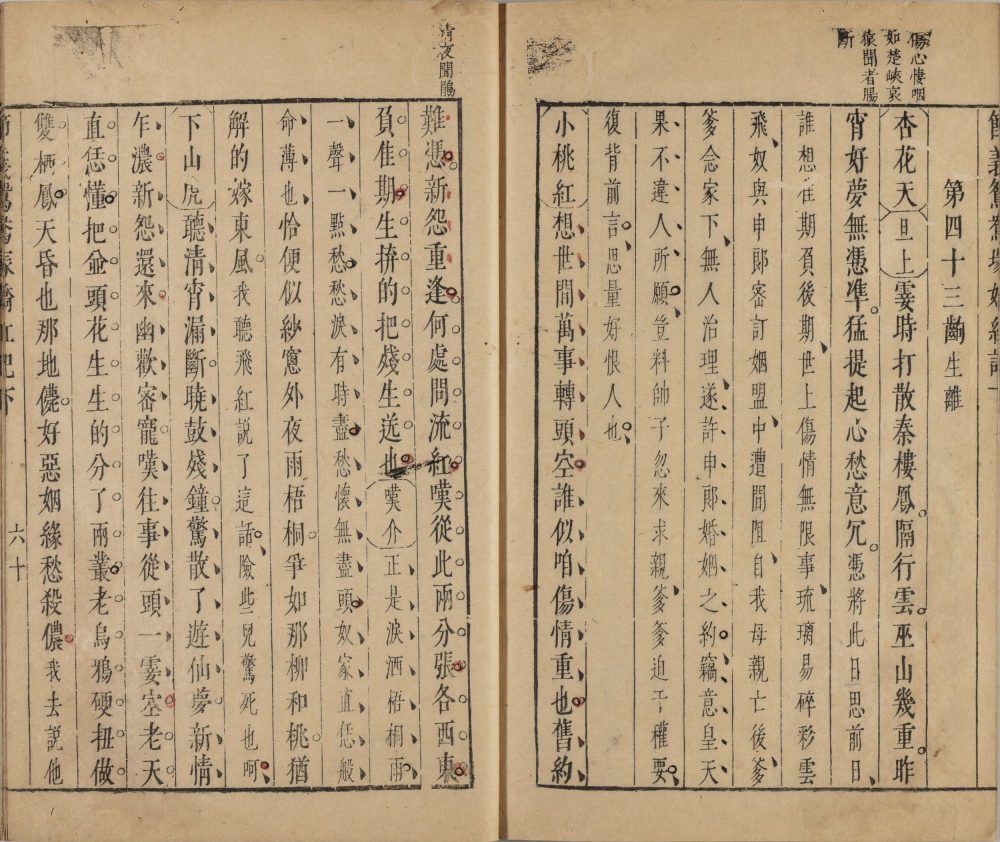 傷心悽咽
如楚峽哀
猿聞者腸
斷
節義鴛鴦塚嬌紅記下
第四十三齣生離
杏花天(旦上)霎時打散秦樓鳳。隔行雲。巫山幾重。昨
宵好夢無憑準。猛提起心愁意冗。憑將此日思前日、
誰想佳期負後期、世上傷情無限事、琉璃易碎彩雲
飛、奴與申郎密訂姻盟、中遭間阻、自我母親亡後、爹
爹念家下、無人治理、遂許申郎婚姻之約。竊意皇天、
果不違人所願、豈料帥子忽來求親、爹爹迫于權要、
復背前言、思量好恨人也、
小桃紅想世間萬事轉頭空。誰似咱傷情重也。舊約
清夜聞鵑
難憑新怨重逢何處問流紅嘆從此兩分張各西東
負佳期。生拚的把殘生送也(嘆介)正是淚洒梧桐雨
一聲一點愁、愁淚有時盡、愁懷無盡頭、奴家直恁般
命薄也、恰便似紗窻外夜雨梧桐。爭如那柳和桃。猶
解的嫁東風。我聽飛紅說了這話、險些兒驚死也呵、
下山虎聽清宵漏斷、曉鼓殘鐘、驚散了遊仙夢、新情
乍濃、新怨還來、幽歡密寵、嘆往事從頭一霎空、老天
直恁懂。把並頭花生生的分了兩叢。老烏鴉硬扭做
雙栖鳳。天昏也那地儂。好惡姻緣愁殺儂。我去說他
節義鴛鴦塚嬌紅記下
六十